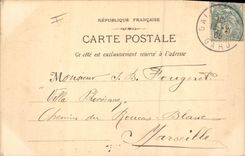 RÉPUBLIQUE FRANÇAISE
CARTE POSTALE
Ce côté est exclusivement réservé à l'adresse
GARD
Monsieur J. B. Fougerat
Villa
Chemin du Roucas-Blanc
Marseille